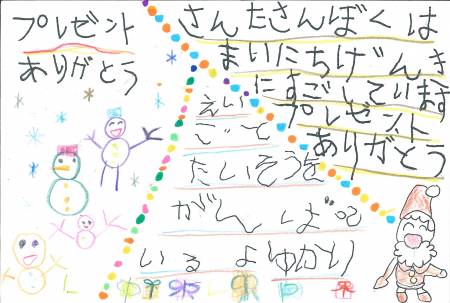 プレゼント
ありがとう
さんたさんぼくは
まいにちげんき
にすごしています
プレゼント
ありがとう
えいごで
たいそうを
がんばって
いるよ ゆかり